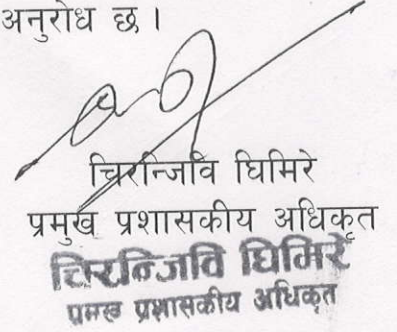 अनुरोध छ ।
चिरन्जिवि घिमिरे
प्रमुख प्रशासकीय अधिकृत
चिरन्जिवि घिमिरे
प्रमुख प्रशासकीय अधिकृत